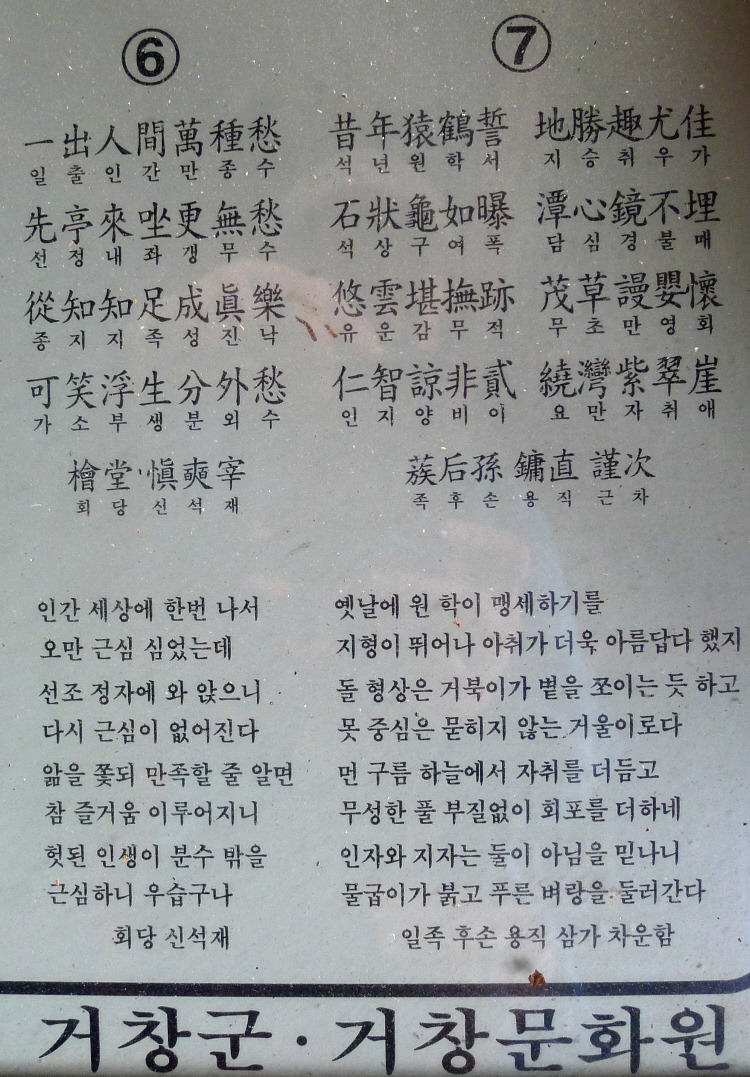 ⑥
一出人間萬種愁
일출인간만종수
先亭來坐更無愁
선정내좌갱무수
從知知足成眞樂
종지지족성진낙
可笑浮生分外愁
가소부생분외수
檜堂·愼奭宰
회당신석재
인간 세상에 한번 나서
오만 근심 심었는데
선조 정자에 와 앉으니
다시 근심이 없어진다
앎을 쫓되 만족할 줄 알면
참 즐거움 이루어지니
헛된 인생이 분수 밖을
근심하니 우습구나
회당 신석재
⑦
昔年猿鶴誓 地勝趣尤佳
석년원학서 지승취우가
石狀龜如曝 潭心鏡不埋
석상구여폭 담심경불매
悠雲堪撫跡 茂草謾嬰懷
유운감무적 무초만영회
仁智諒非貳 繞灣紫翠崖
인지양비이 요만자취애
蔟后孫 鏞直 謹次
족후손 용직 근차
옛날에 원 학이 맹세하기를
지형이 뛰어나 아취가 더욱 아름답다 했지
돌 형상은 거북이가 볕을 쪼이는 듯 하고
못 중심은 묻히지 않는 거울이로다
먼 구름 하늘에서 자취를 더듬고
무성한 풀 부질없이 회포를 더하네
인자와 지자는 둘이 아님을 믿나니
물굽이가 붉고 푸른 벼랑을 둘러간다
일족 후손 용직 삼가 차운함
거창군·거창문화원